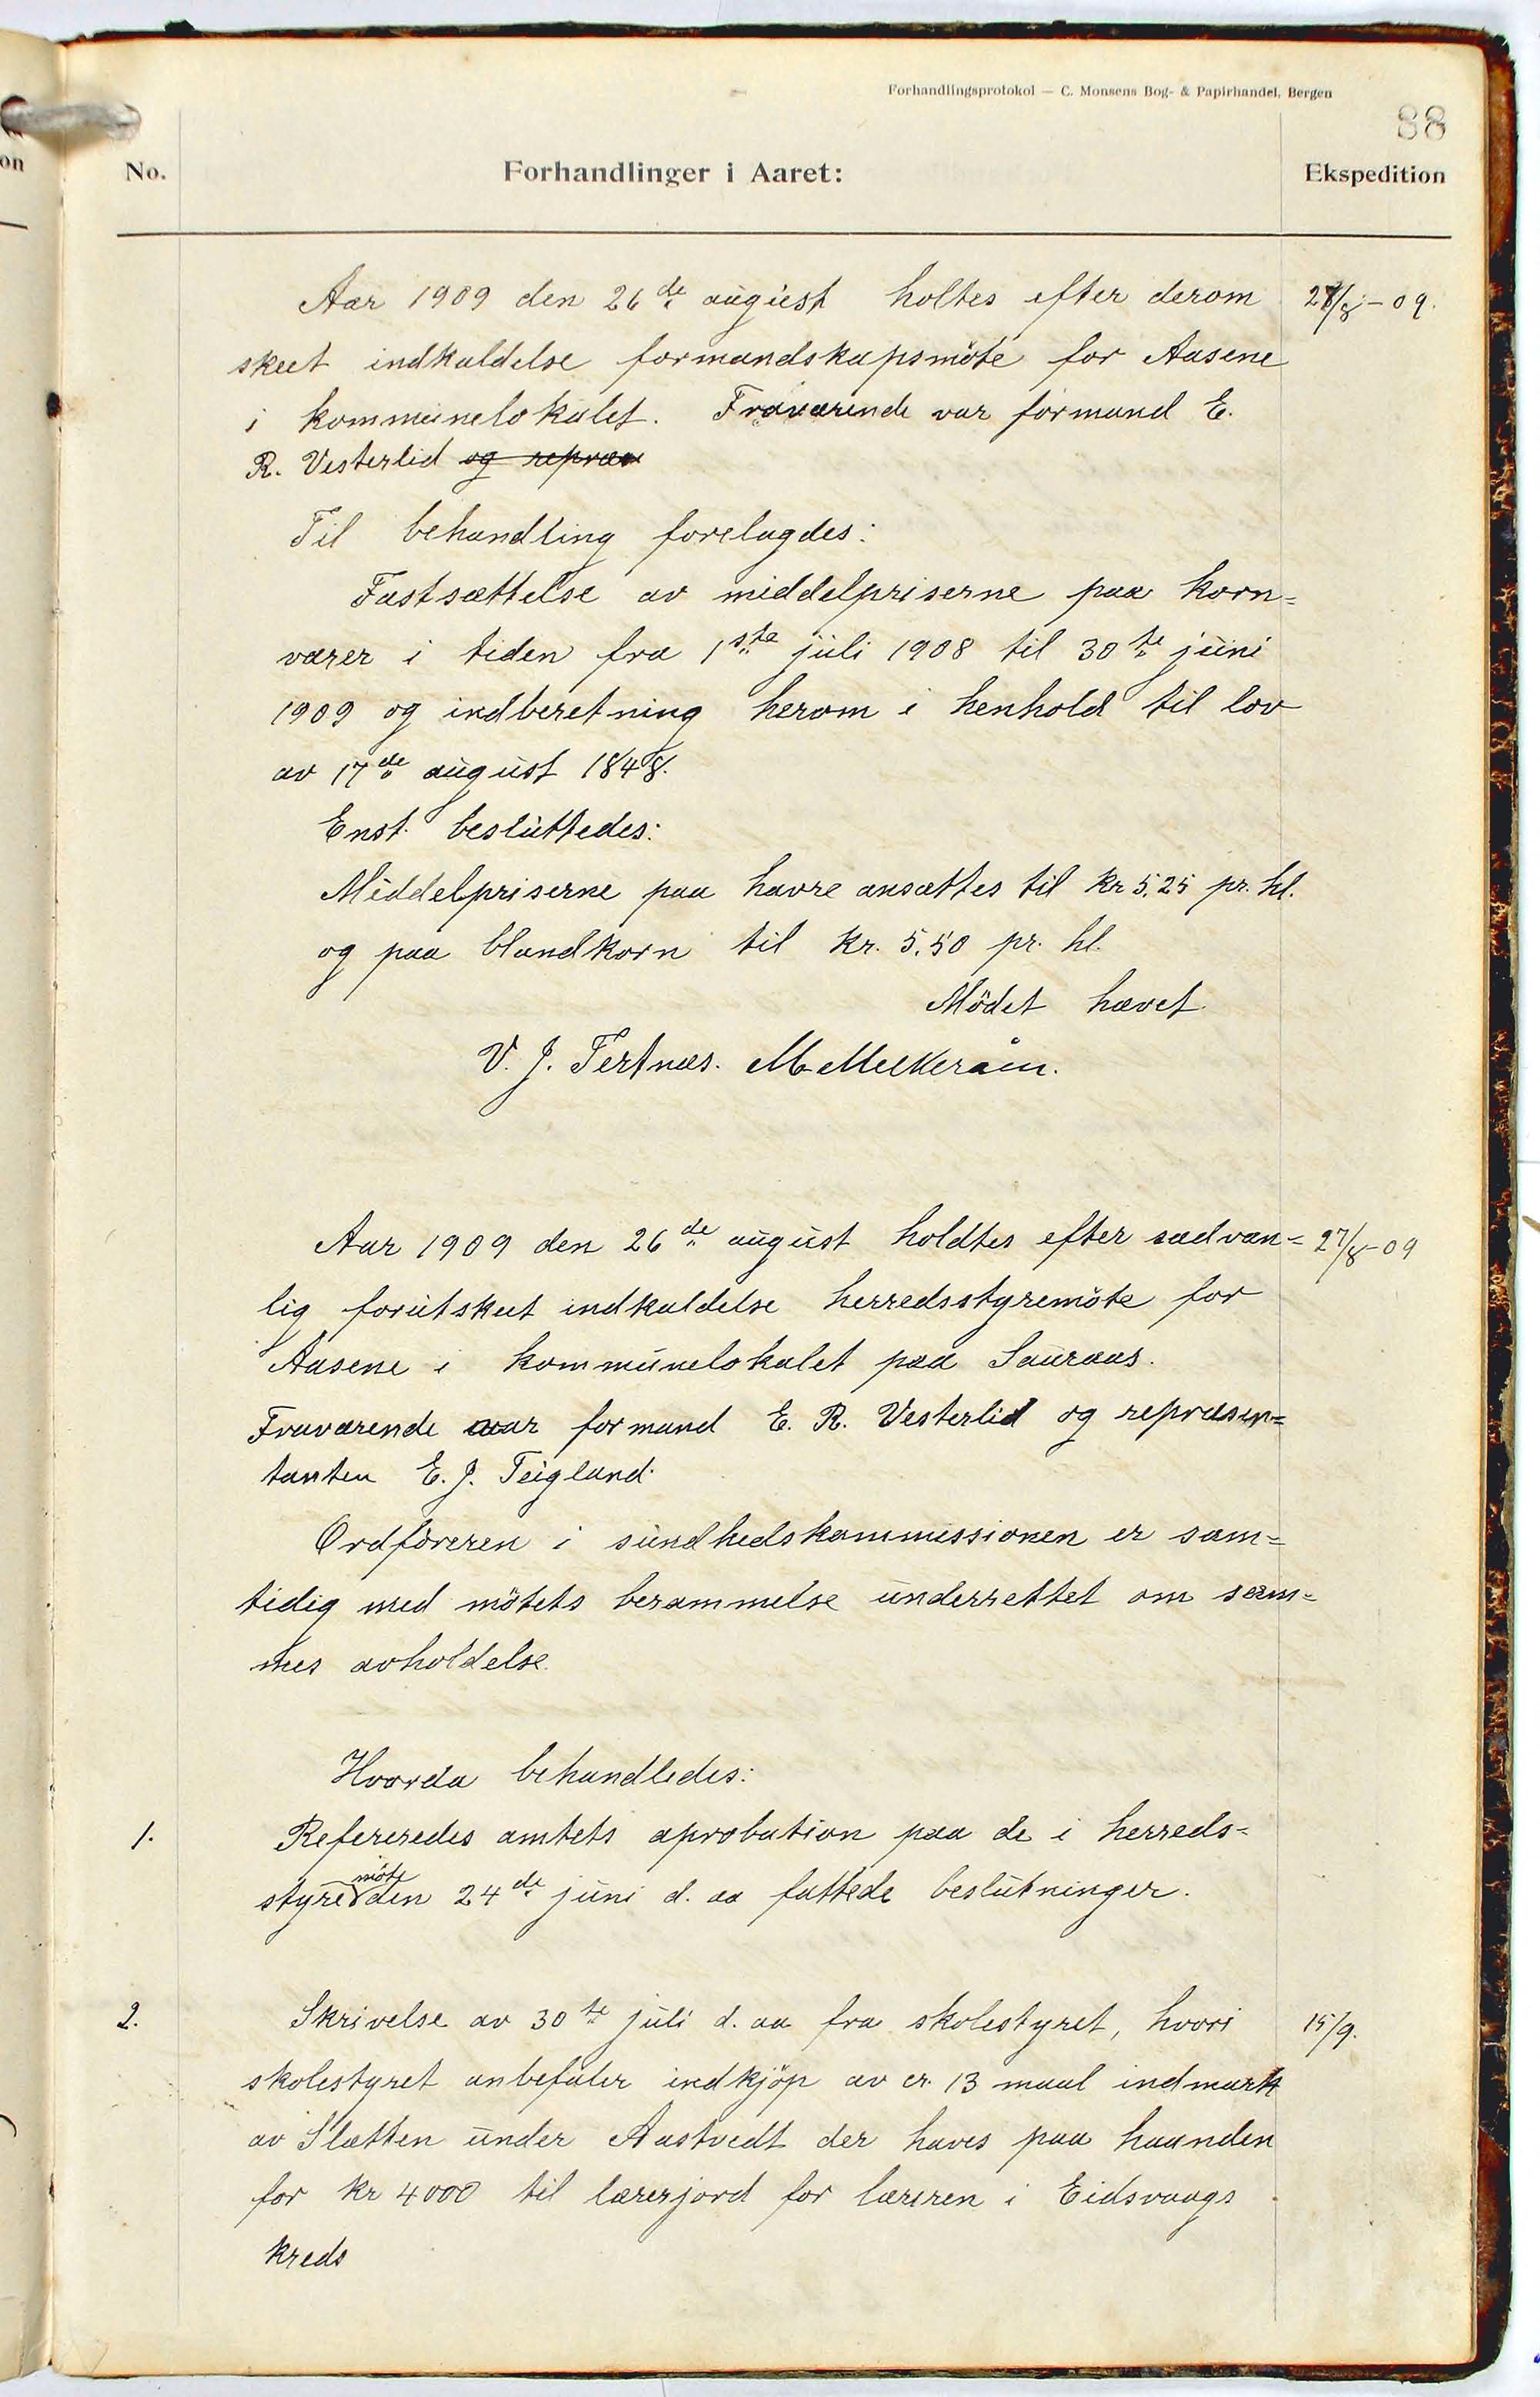 Forhandlingsprotokol — C. Monsens Bog- & Papirhandel, Bergen
88
on
No. Forhandlinger i Aaret: Ekspedition
Aar 1909 den 26de august holtes efter derom 27/8-09.
skeet indkaldelse formandskapsmöte for Aasene
i kommunelokalet. Fraværende var formand E.
R. Vesterlid og repræs
Til behandling forelagdes:
Fastsættelse av middelpriserne paa korn=
varer i tiden fra 1ste juli 1908 til 30te juni
1909 og indberetning herom i henhold til lov
av 17de august 1848.
Enst. besluttedes:
Middelpriserne paa havre ansættes til Kr 5,25 pr. hl.
og paa blandkorn til Kr. 5.50 pr. hl.
Mödet hævet.
V. J. Tertnæs. M. Melkeraaen.
Aar 1909 den 26de august holdtes efter sædvan= 27/8-09
lig forutskeet indkaldelse herredsstyremöte for
Aasene i kommunelokalet paa Sauraas.
Fraværende var formand E. R. Vesterlid og repræsen=
tanten E. J. Teigland.
Ordföreren i sundhedskommissionen er sam=
tidig med mötets berammelse underrettet om sam=
mes avholdelse.
Hvorda behandledes:
1. Refereredes amtets aprobation paa de i herreds=
möte
styre den 24de juni d. aa fattede beslutninger.
2. Skrivelse av 30te juli d. aa fra skolestyret, hvori 15/9.
skolestyret anbefaler indkjöp av cr. 13 maal indmark
av Slætten under Aastvedt der haves paa haanden
for Kr 4000 til lærerjord for læreren i Eidsvaags
kreds